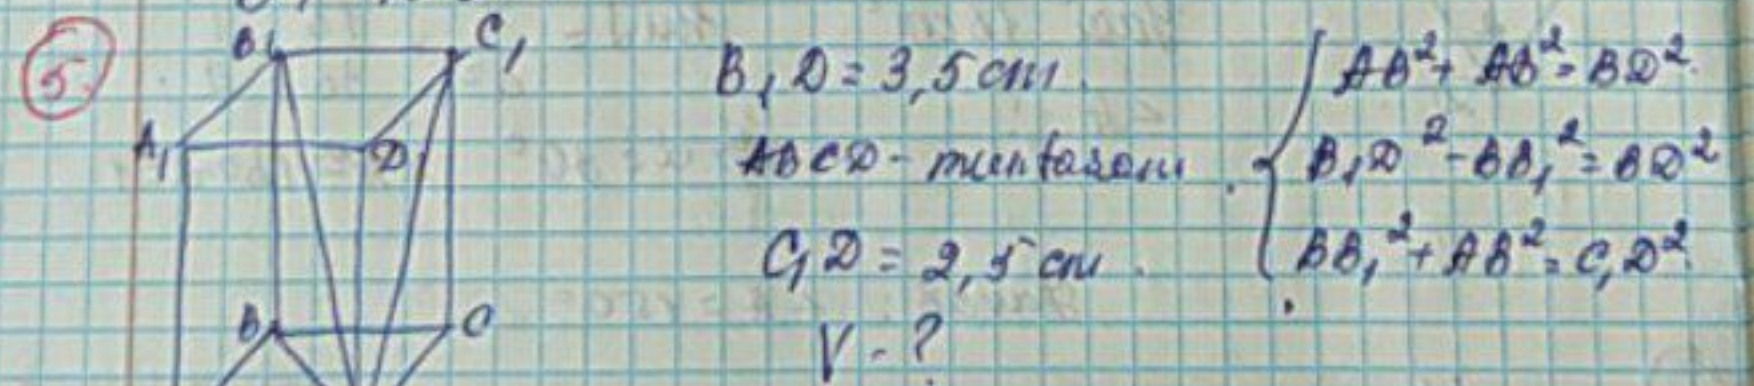 5.
B₁ C₁
A₁ D
B C
B₁D = 3,5 cm.
ABCD -
C₁D = 2,5 cm.
V - ?
AB² + AB² = BD².
B₁D² - BB₁² = BD²
BB₁² + AB² = C₁D².